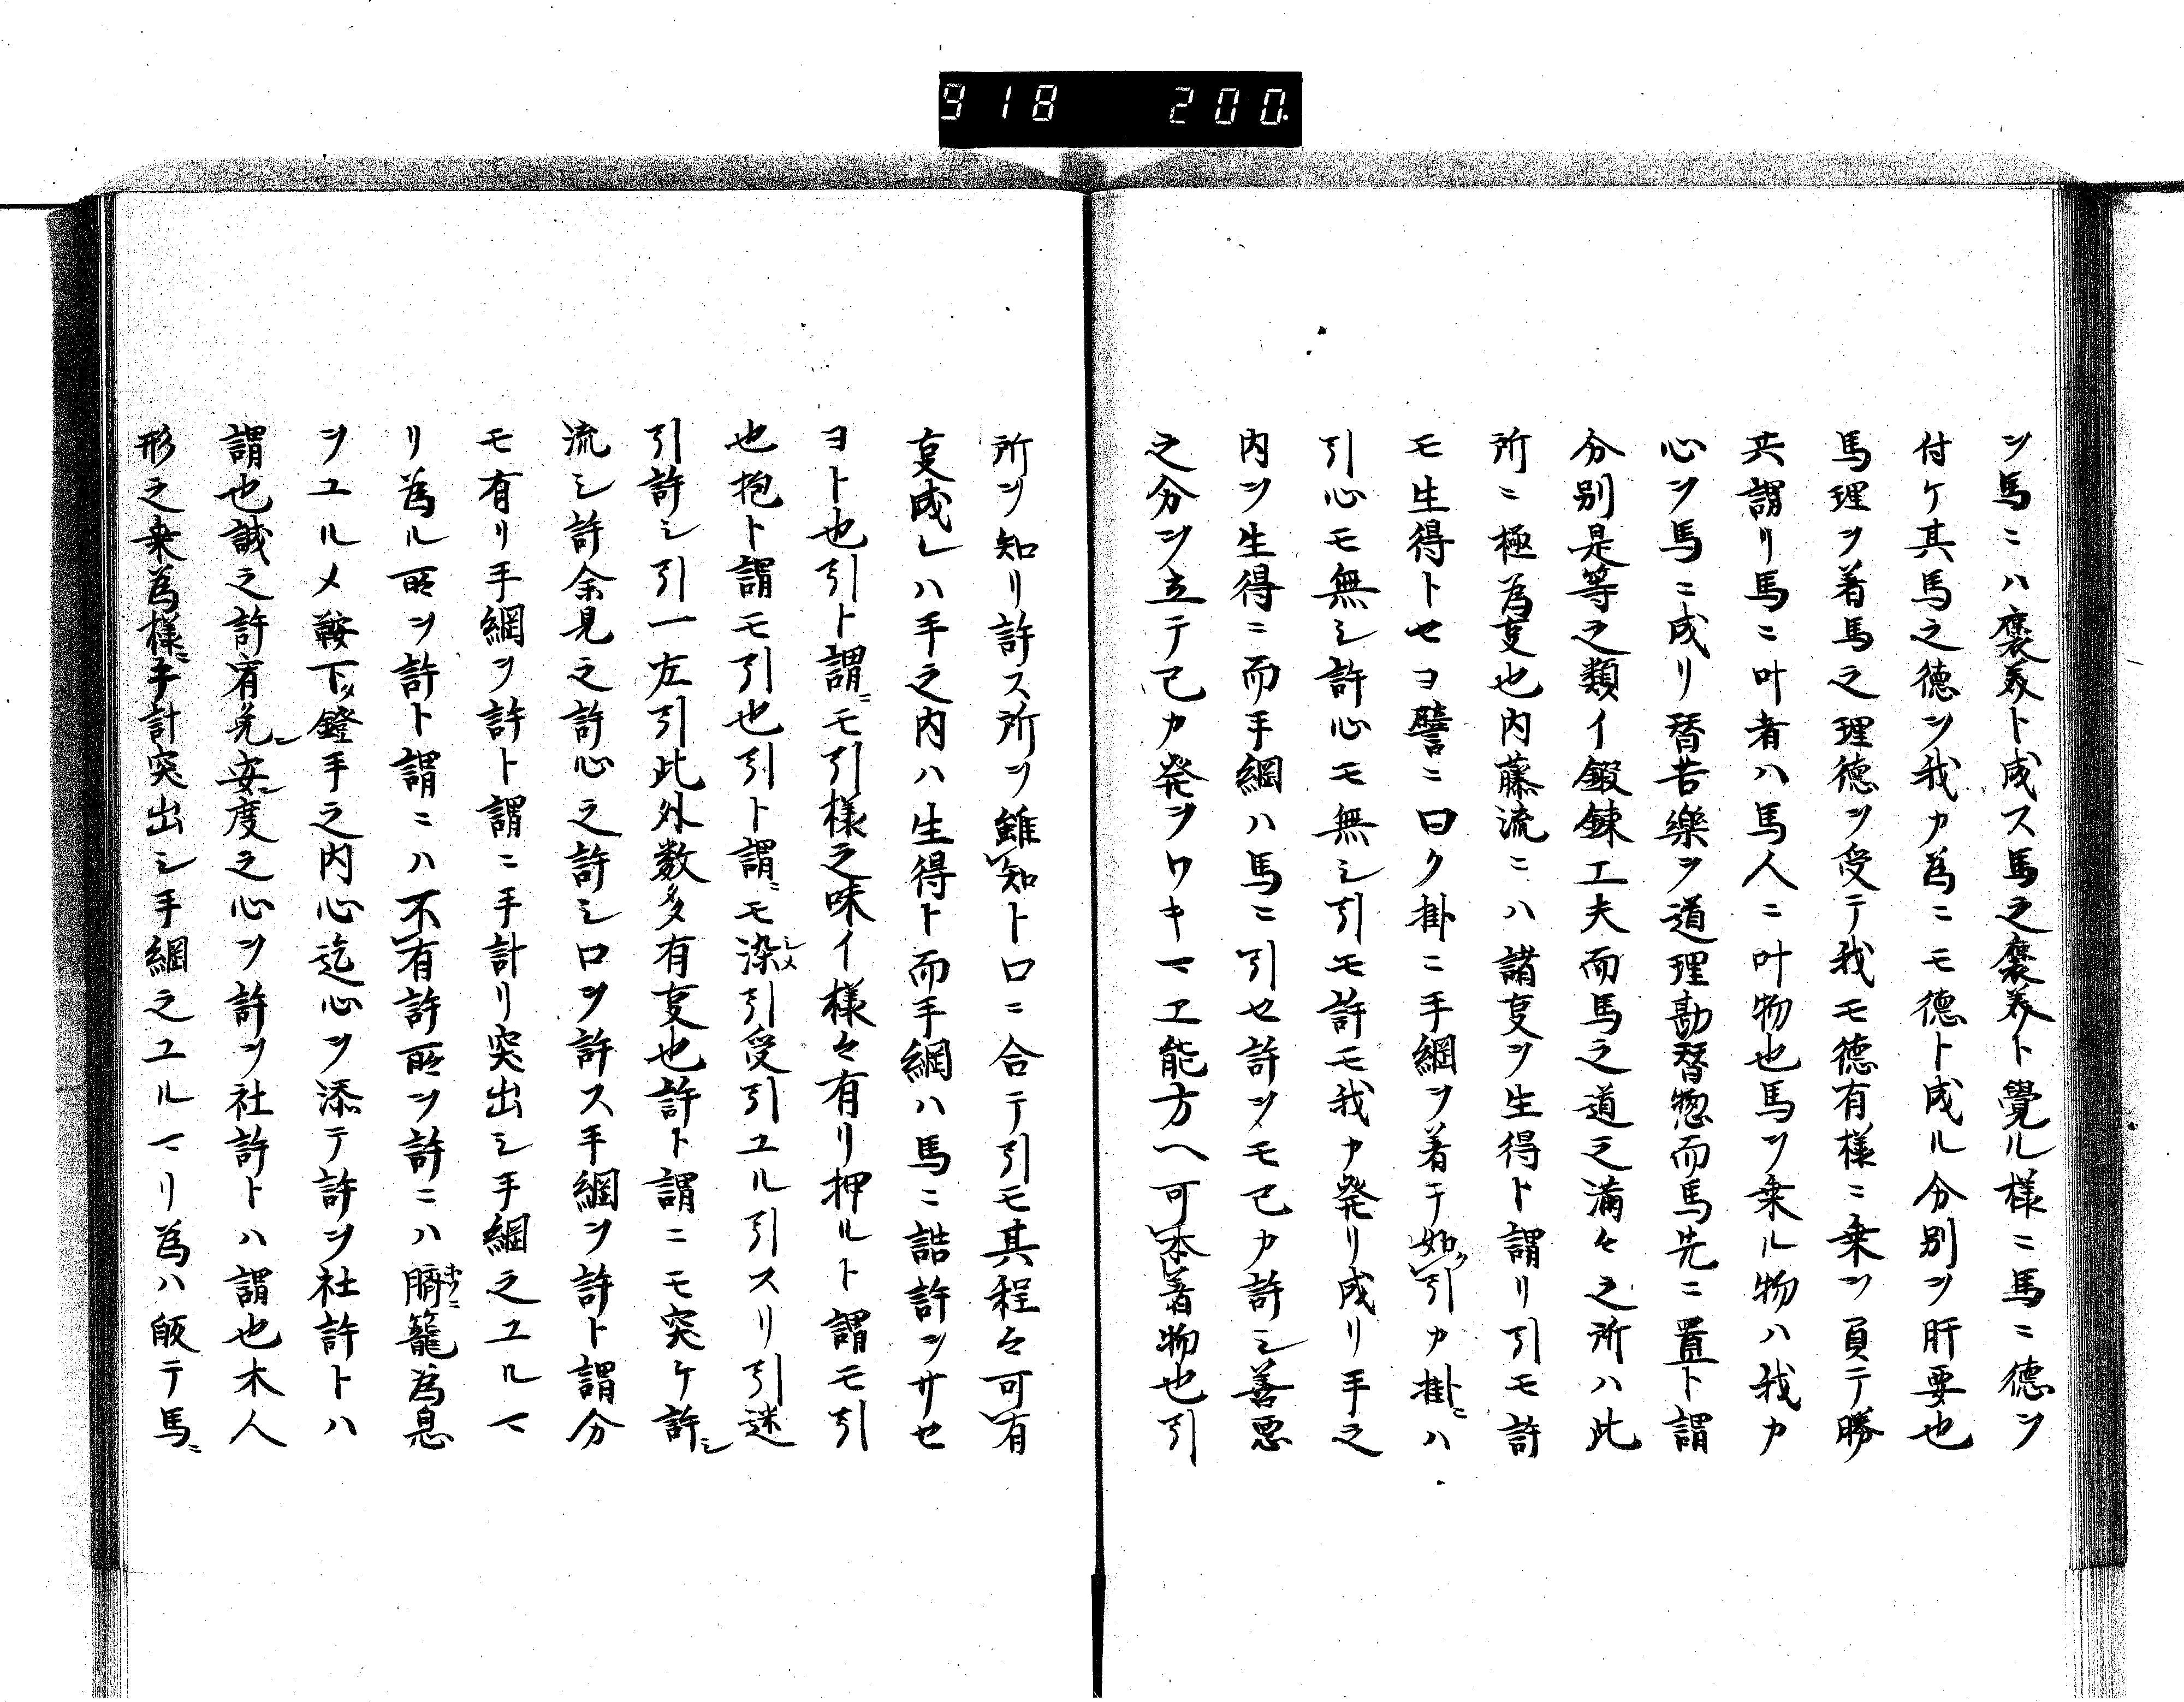 918 200.
ヲ馬ニハ褒美ト成ス馬之褒美ト覺ル様ニ馬ニ德ヲ
付ケ其馬之徳ヲ我カ為ニモ德ト成ル分別ヲ肝要也
馬理ヲ着馬之理德ヲ受テ我モ德有様ニ乗ツ負テ勝
共謂リ馬ニ叶者ハ馬人ニ叶物也馬ヲ乗ル物ハ我カ
心ヲ馬ニ成リ替苦樂ヲ道理勘替惣而馬先ニ置ト謂
分別是等之類イ鍛錬工夫而馬之道之満々之所ハ此
所ニ極為㕝也内藤流ニハ諸㕝ヲ生得ト謂リ引モ許
モ生得トセヨ譬ニ曰ク掛ニ手綱ヲ着テ如ク引カ掛ニハ
引心モ無シ許心モ無シ引モ許モ我カ発リ成リ手之
内ヲ生得ニ而手綱ハ馬ニ引セ許ヲモ己カ許シ善悪
之分ヲ立テ己カ発ヲワキマエ能方ヘ可本著物也引
所ヲ知リ許ス所ヲ雖知ト口ニ合テ引モ其程々可有
㕝成レハ手之内ハ生得ト而手綱ハ馬ニ詰許ヲサセ
ヨト也引ト謂ニモ引様之味イ様々有リ押ルト謂モ引
也抱ト謂モ引也引ト謂ニモ染シメ引受引ユル引スリ引迷
引許シ引一左引此外数多有㕝也許ト謂ニモ突ケ許シ
流シ許余見之許心之許シ口ヲ許ス手綱ヲ許ト謂分
モ有リ手綱ヲ許ト謂ニ手計リ突出シ手綱之ユルマ
リ為ル所ヲ許ト謂ニハ不有許所ヲ許ニハ籠為息
ヲユルメ鞍下ツ鐙手之内心迄心ヲ添テ許ヲ社許トハ
謂也誠之許宥免ニ安ニ度之心ヲ許ヲ社許トハ謂也木人
形之乗為様ニ手計突出シ手綱之ユルマリ為ハ皈テ馬ニ